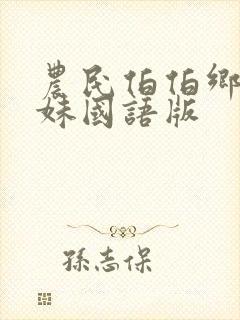 農民伯伯鄉
妹國語版
孫志保